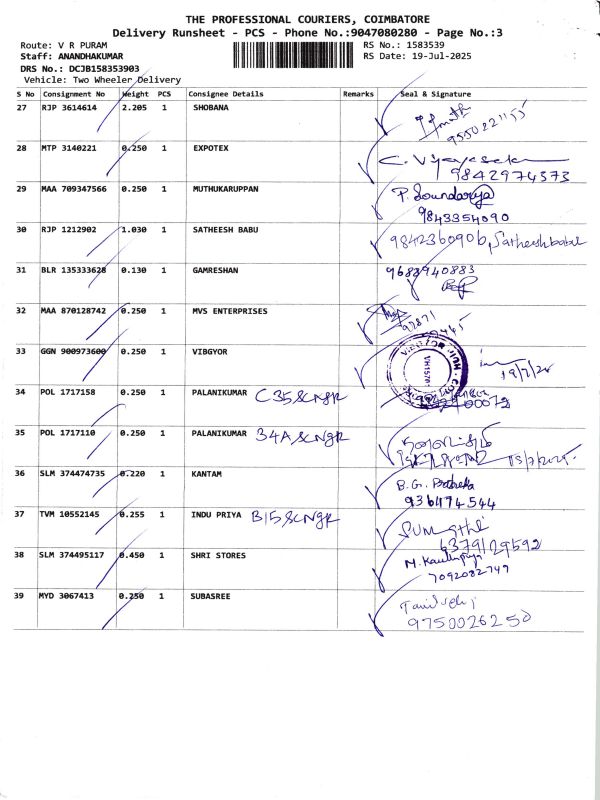 THE PROFESSIONAL COURIERS, COIMBATORE
Delivery Runsheet - PCS - Phone No.:9047080280 - Page No.:3
Route: V R PURAM RS No.: 1583539
Staff: ANANDHAKUMAR RS Date: 19-Jul-2025
DRS No.: DCJB158353903
Vehicle: Two Wheeler Delivery
S No Consignment No Weight PCS Consignee Details Remarks Seal & Signature
27 RJP 3614614 2.205 1 SHOBANA
28 MTP 3140221 0.250 1 EXPOTEX
9842974373
29 MAA 709347566 0.250 1 MUTHUKARUPPAN P. Soundarya
9843354090
30 RJP 1212902 1.030 1 SATHEESH BABU 9842360906, Satheeshbabu
31 BLR 135333628 0.130 1 GAMRESHAN 9688940883
32 MAA 870128742 0.250 1 MVS ENTERPRISES
33 GGN 900973600 0.250 1 VIBGYOR
34 POL 1717158 0.250 1 PALANIKUMAR C35 SCNgR
35 POL 1717110 0.250 1 PALANIKUMAR 34A, SCNgR
36 SLM 374474735 0.220 1 KANTAM B.G.
936474544
37 TVM 10552145 0.255 1 INDU PRIYA B15 SCNgR
6379129592
38 SLM 374495117 0.450 1 SHRI STORES
7092082749
39 MYD 3067413 0.250 1 SUBASREE
9750026250